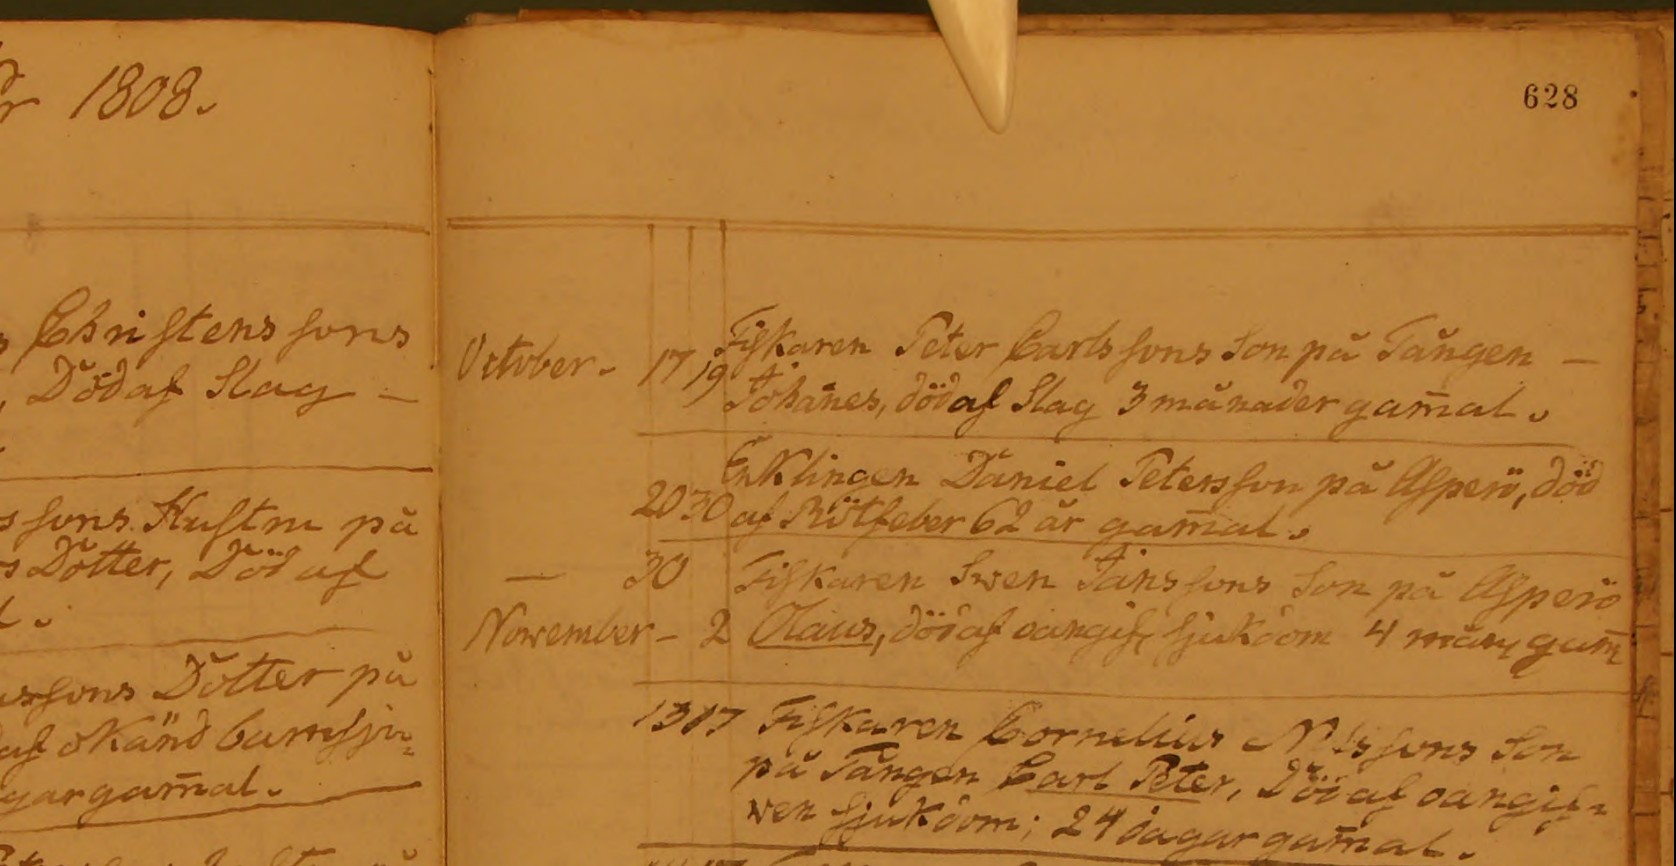 r 1808.
Christens sons
, Död af Slag —
sons Hustru på
s Dotter, Död af
Dotter på
af okänd barnsju=
gar gam̄al.
628
October. 17 19 Fiskaren Peter Carlssons Son på Tången —
Johan̄es, död af Slag 3 månader gam̄al.
20 30 Enklingen Daniel Petersson på Asperö, död
af Rötfeber 62 år gam̄al.
— 30 Fiskaren Swen Jänssons Son på Asperö
November - 2 Olaus, död af oangif. sjukdom 4 mån gam̄
13 17 Fiskaren Cornelius Nilssons Son
på Tången Carl Peter, Död af oangif=
wen sjukdom; 24 dagar gam̄al.